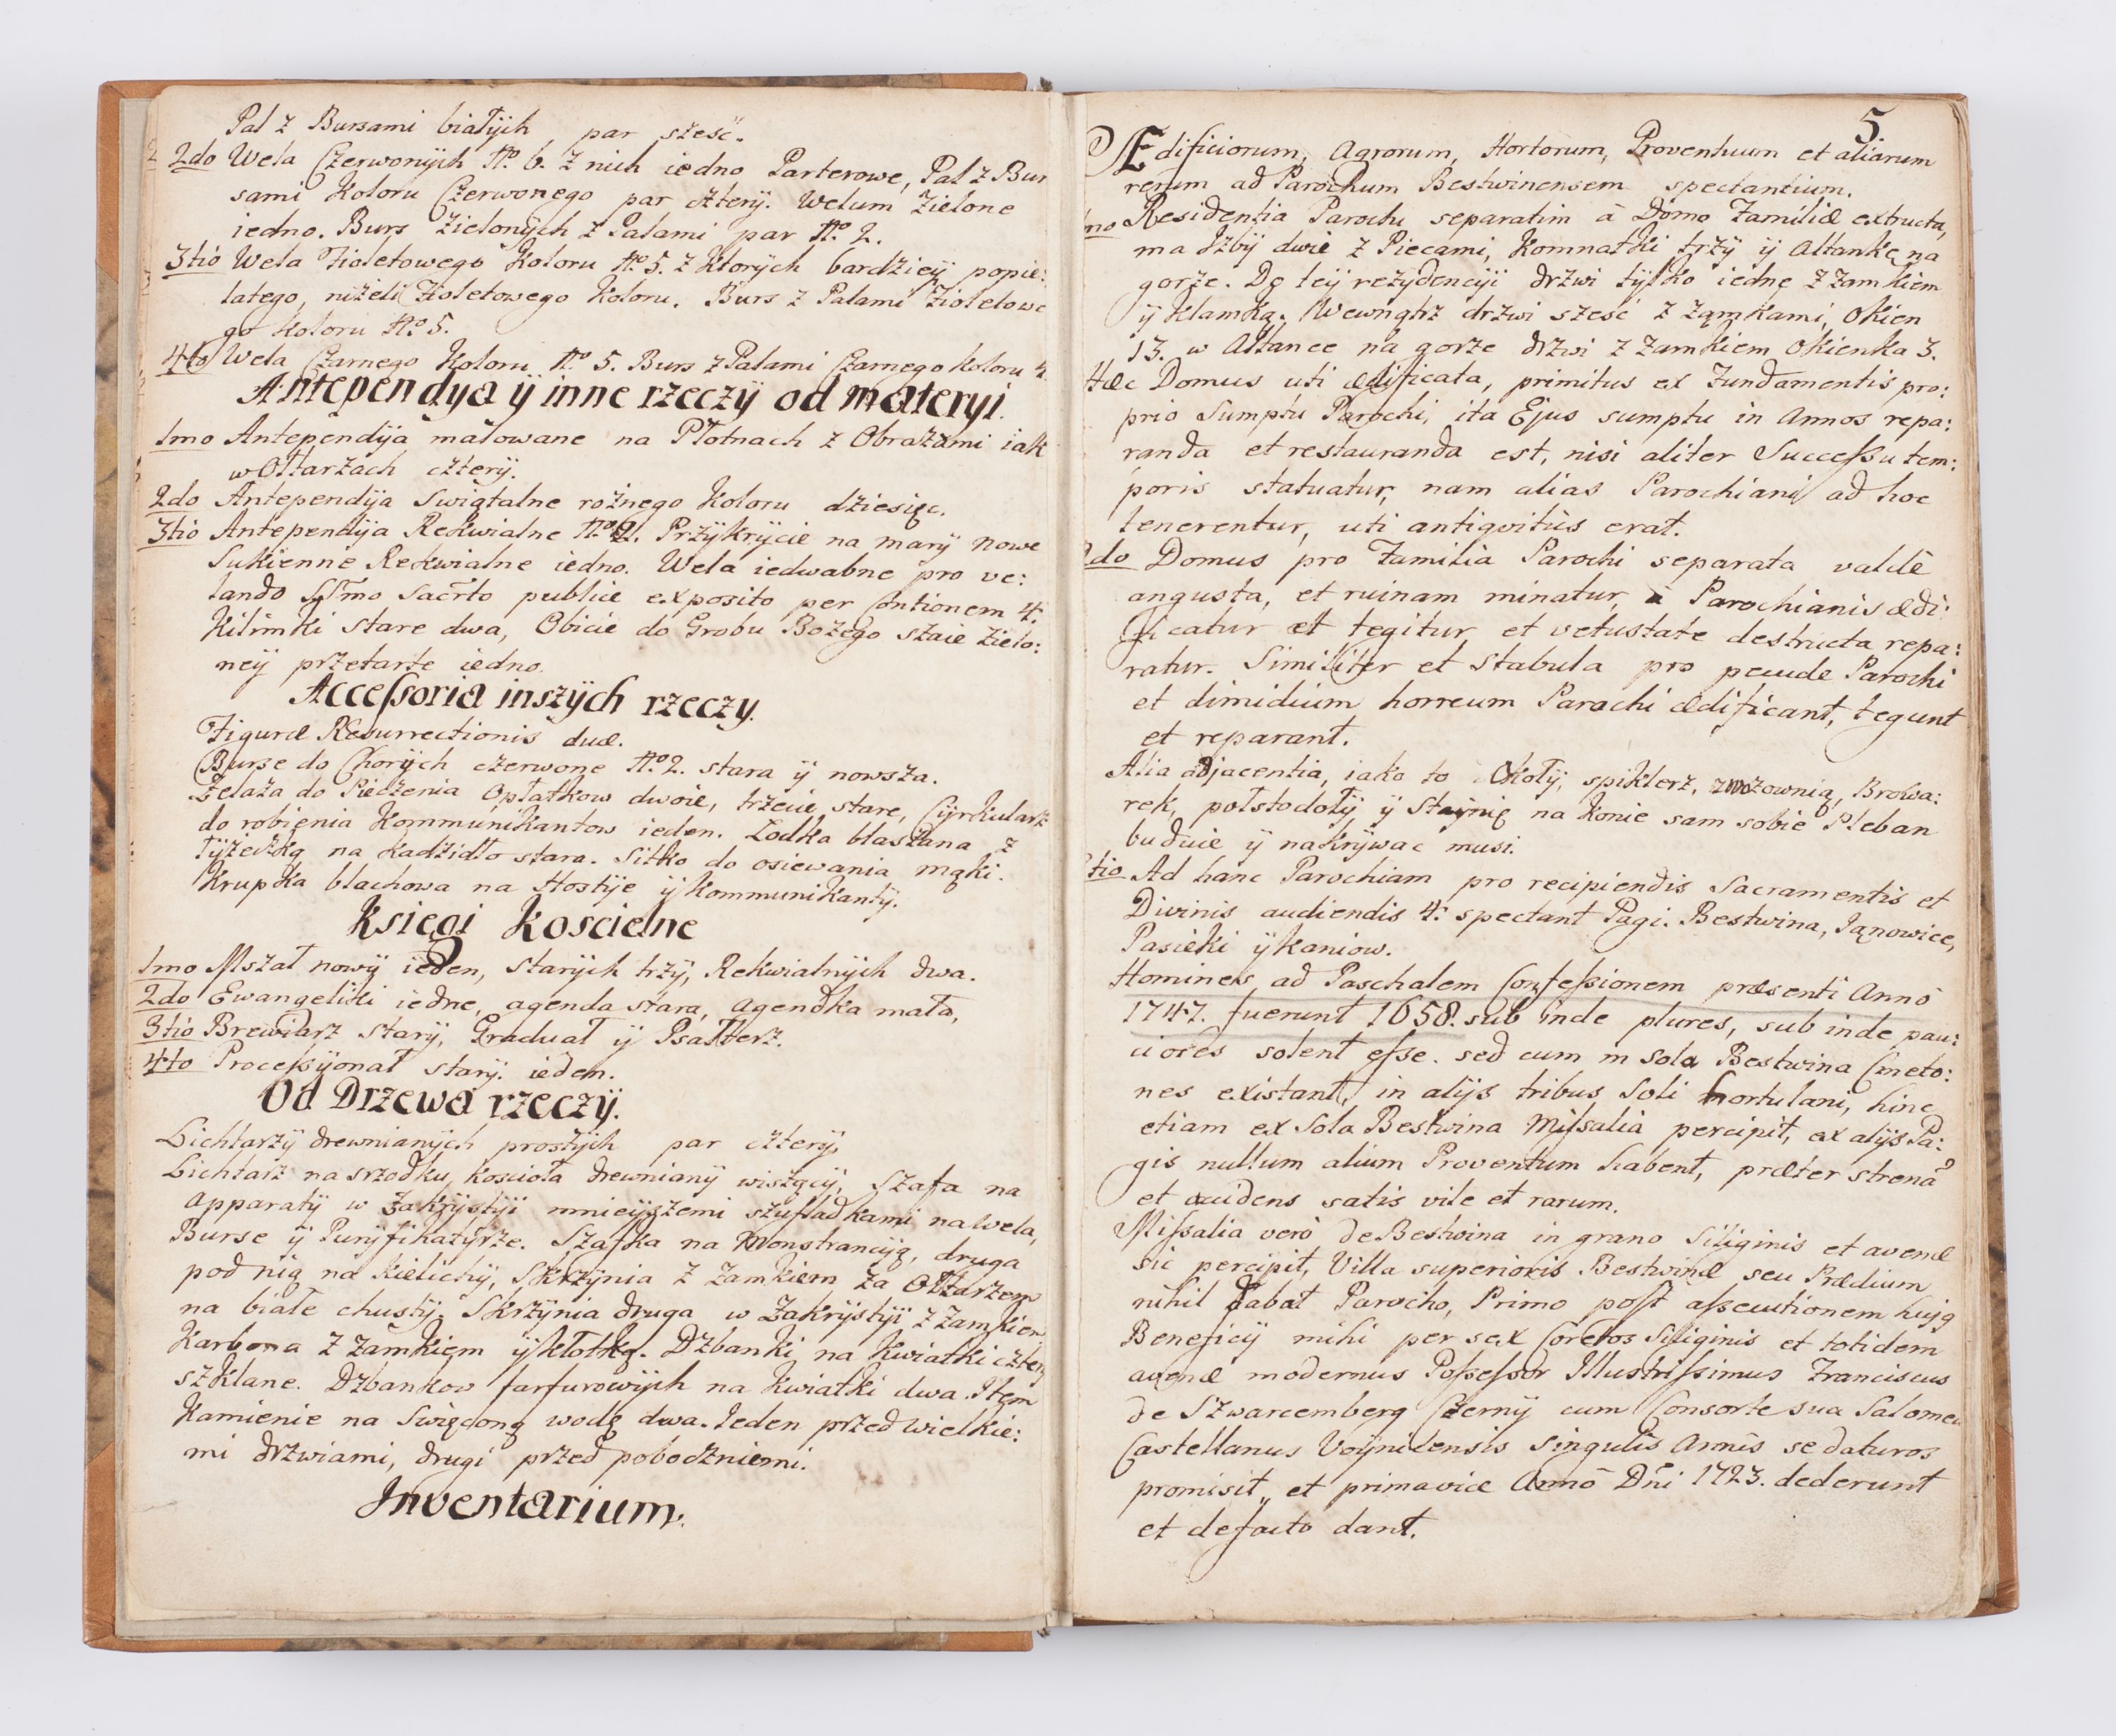 Pal z Bursami białÿch par sześć.
2do Wela Czerwonÿch No. 6. z nich iedno Parterowe, Pal z Bur
sami Koloru Czerwonego par czterÿ. Welum Zielone
iedno. Burs Zielonÿch z Palami par No. 2.
3tio Wela Fioletowego Koloru No. 5. z Ktorÿch bardzieÿ popie:
latego, niżeli Fioletowego Koloru. Burs z Palami Fioletowe
go Koloru No. 5.
4to Wela Czarnego Koloru No. 5. Burs z Palami Czarnego Koloru 4.
Antependya ÿ inne rzeczÿ od materyi.
1mo Antependÿa malowane na Płotnach z Obrazami iak
w Ołtarzach czterÿ.
2do Antependÿa Swiątalne rożnego Koloru dziesięc.
3tio Antependÿa Rekwialne No. 2. Przÿkrÿcie na marÿ nowe
Sukienne Rekwialne iedno. Wela iedwabne pro ve:
lando SSmo Sacrto publice exposito per Contionem 4.
Kilimki stare dwa, Obicie do Grobu Bożego szaie zielo:
neÿ przetarte iedno.
Accessoria inszÿch rzeczy.
Figuræ Resurrectionis duæ.
Burse do Chorÿch czerwone No. 2. stara ÿ nowsza.
Żelaza do Pieczenia Opłatkow dwoie, trzecie stare, Cÿrkularz
do robienia Kommunikantow ieden. Łodka blaszana z
łÿżeczką na Kadzidło stara. Sitko do osiewania mąki.
Krupka blachowa na Hostÿe ÿ Kommunikantÿ.
Księgi Koscielne
1mo Mszał nowÿ ieden, starÿch trzÿ, Rekwialnÿch dwa.
2do Ewangeliki iedne, agenda stara, agendka mała,
3tio Brewiarz starÿ, Graduał ÿ Psałterz.
4to Processÿonał starÿ ieden.
Od Drzewa rzeczÿ.
Lichtarzÿ drewnianÿch prostÿch par czterÿ,
Lichtarz na srzodku kościoła drewnianÿ wiszącÿ, Szafa na
apparatÿ w Zakrÿstÿi mnieÿszemi szufladkami na Wela,
Burse ÿ Purÿfikatÿrze. Szafka na Monstrancÿą, druga
pod nią na Kielichÿ, Skrzÿnia z zamkiem za Ołtarzem
na białe chustÿ. Skrzÿnia druga w Zakrÿstÿi z zamkiem
Karbona z zamkiem ÿ kłotką. Dzbanki na Kwiatki czterÿ
szklane. Dzbankow farfurowÿch na Kwiatki dwa. Item
Kamienie na Swięconą wodę dwa. Ieden przed wielkie:
mi drzwiami, drugi przed poboczniemi.
Inventarium.
5.
Ædificiorum, Agrorum, Hortorum, Proventuum et aliarum
rerum ad Parochum Bestwinensem spectantium.
1mo Residentia Parochi separatim à Domo Familiæ extructa,
ma Izbÿ dwie z Piecami, Komnatki trzÿ ÿ Altankę na
gorze. Do teÿ rezÿdencÿi drzwi tÿlko iedne z zamkiem
ÿ Klamką. Wewnątrz drzwi sześć z ząmkami, Okien
13. w Altance na gorze drzwi z zamkiem Okienka 3.
Hæc Domus uti ædificata, primitus ex Fundamentis pro:
prio Sumptu Parochi, ita Ejus sumptu in Annos repa:
randa et restauranda est, nisi aliter Successu tem:
poris statuatur, nam alias Parochiani ad hoc
tenerentur, uti antiqvitùs erat.
2do Domus pro Familia Parochi separata valdè
angusta, et ruinam minatur, à Parochianis ædi:
ficatur et tegitur et vetustate destructa repa:
ratur. Similiter et stabula pro pecude Parochi
et dimidium horreum Parochi ædificant, tegunt
et reparant.
Alia adjacentia, iako to Okołÿ, spiklerz, wozownią, Browa:
rek, połstodołÿ ÿ Staÿnię na konie sam sobie Pleban
buduie ÿ nakrÿwac musi.
3tio Ad hanc Parochiam pro recipiendis Sacramentis et
Divinis audiendis 4: spectant Pagi. Bestwina, Janowice,
Pasieki ÿ Kaniow.
Homines ad Paschalem Confessionem præsenti Anno
1747. fuerunt 1658. sub inde plures, sub inde pau:
ciores solent esse. sed cum in sola Bestwina Cmeto:
nes existant, in alÿs tribus Soli hortulani, hinc
etiam ex Sola Bestwina Missalia percipit, ex alÿs Pa:
gis nullum alium Proventum habent, præter strenã
et accidens satis vile et rarum.
Missalia verò de Bestwina in grano Siliginis et avenæ
sic percipit, Villa superioris Bestwinæ seu Prædium
nihil dabat Parocho, Primo post assecutionem hujq
Beneficÿ mihi per sex Coretos Siliginis et totidem
avenæ modernus Possessor Illustrissimus Franciscus
de Szwarcemberg Czernÿ cum Consorte sua Salomea
Castellanus Voÿnicensis singulis Annis se daturos
promisit, et primavice Anno Dñi 1723. dederunt
et defacto dant.